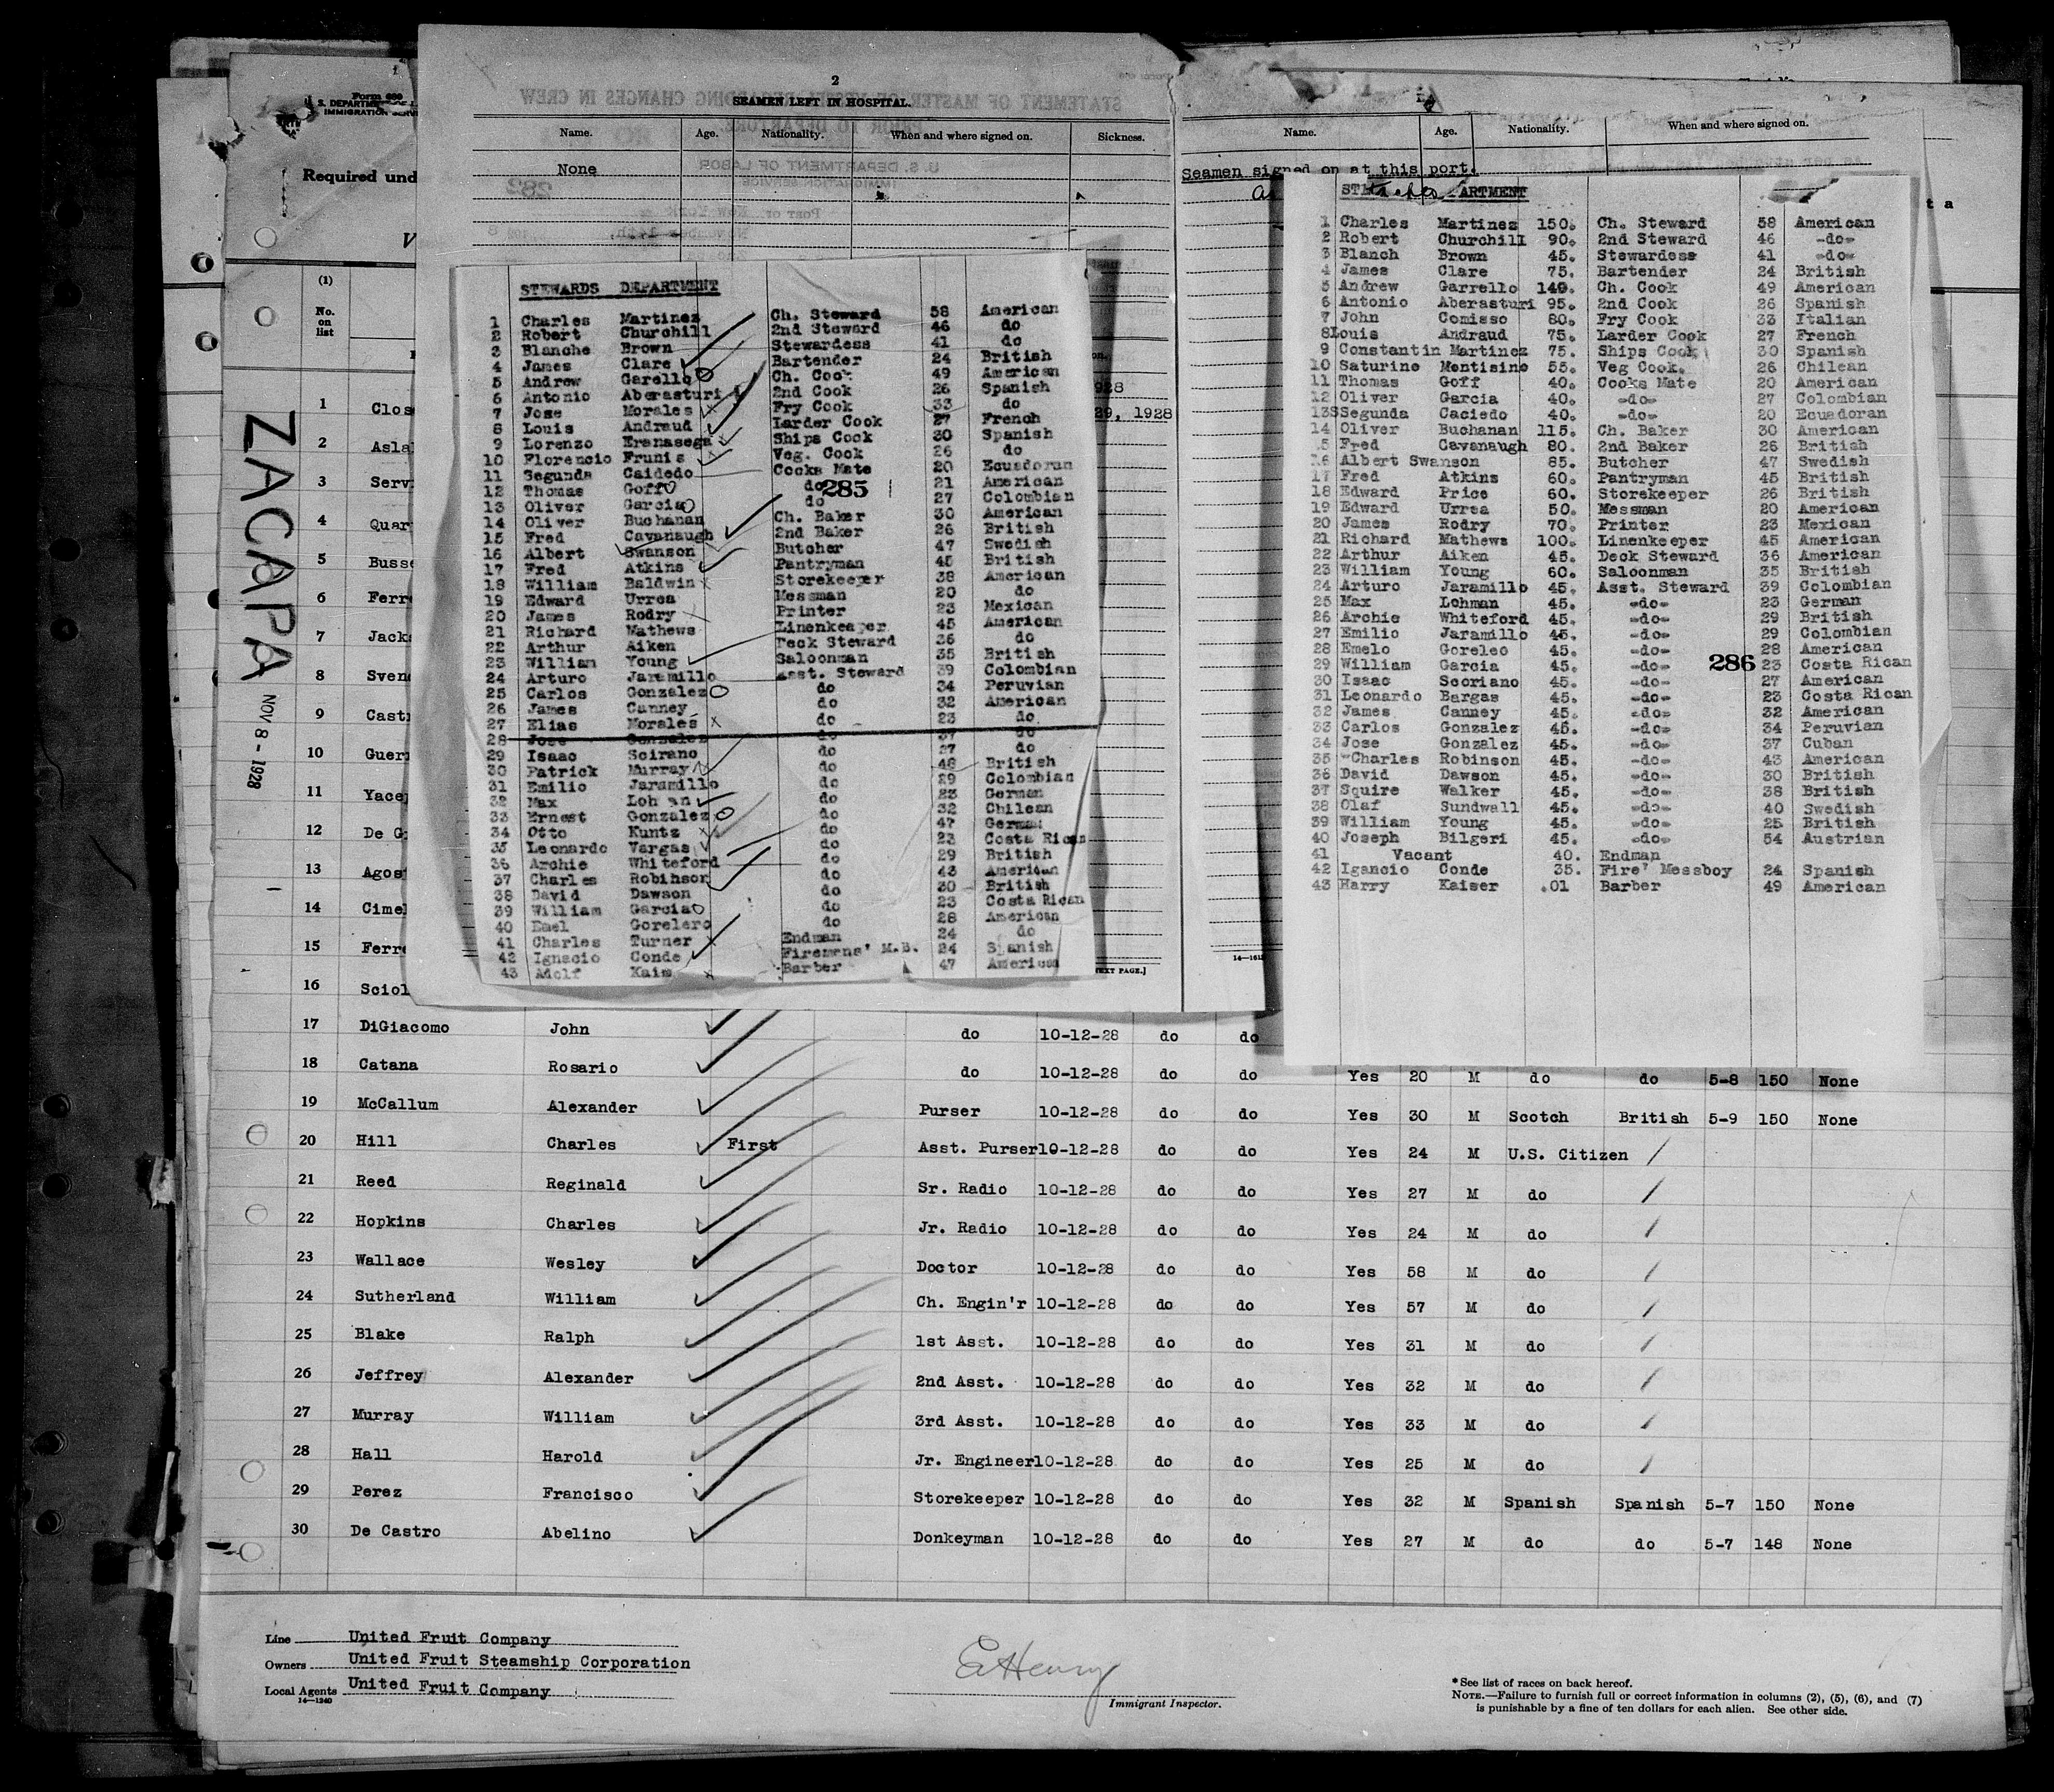 Form 689
S. DEPARTMENT OF L
IMMIGRATION SERV
Required und
V
ZACAPA
NOV 8 - 1928
(1)
No.
on
list
1 Clos
2 Asla
3 Serv
4 Quar
5 Busse
6 Ferr
7 Jack
8 Sven
9 Cast
10 Guer
11 Yace
12 De G
13 Agos
14 Cimel
15 Ferr
16 Sciol
2
SEAMEN LEFT IN HOSPITAL.
Name. Age. Nationality. When and where signed on. Sickness.
None
STATEMENT OF MASTER OF VESSEL REGARDING CHANGES IN CREW
U. S. DEPARTMENT OF LABOR
IMMIGRATION SERVICE
283
928
29, 1928
STEWARDS DEPARTMENT
1 Charles Martinez Ch. Steward 58 American
2 Robert Churchill 2nd Steward 46 do
3 Blanche Brown Stewardess 41 do
4 James Clare Bartender 24 British
5 Andrew Garello Ch. Cook 49 American
6 Antonio Aberasturi 2nd Cook 26 Spanish
7 Jose Morales Fry Cook 33 do
8 Louis Andraud Larder Cook 27 French
9 Lorenzo Eranasega Ships Cook 30 Spanish
10 Florencio Frunis Veg. Cook 26 do
11 Segunda Caidedo Cooks Mate 20 Ecuadoran
12 Thomas Goff do 21 American
285
13 Oliver Garcia do 27 Colombian
14 Oliver Buchanan Ch. Baker 30 American
15 Fred Cavanaugh 2nd Baker 26 British
16 Albert Swanson Butcher 47 Swedish
17 Fred Atkins Pantryman 45 British
18 William Baldwin Storekeeper 38 American
19 Edward Urrea Messman 20 do
20 James Rodry Printer 23 Mexican
21 Richard Mathews Linenkeeper 45 American
22 Arthur Aiken Deck Steward 36 do
23 William Young Saloonman 35 British
24 Arturo Jaramillo Asst. Steward 39 Colombian
25 Carlos Gonzalez do 34 Peruvian
26 James Canney do 32 American
27 Elias Morales do 23 do
28 Jose Gonzalez do 37 do
29 Isaac Scirano do 27 do
30 Patrick Murray do 48 British
31 Emilio Jaramillo do 29 Colombian
32 Max Loh an do 23 German
33 Ernest Gonzalez do 32 Chilean
34 Otto Kuntz do 47 German
35 Leonardo Vargas do 23 Costa Rican
36 Archie Whiteford do 29 British
37 Charles Robinson do 43 American
38 David Dawson do 30 British
39 William Garcia do 23 Costa Rican
40 Emel Gorelero do 28 American
41 Charles Turner Endman 24 do
42 Ignacio Conde Firemens' M.B. 24 Spanish
43 Adolf Kaim Barber 47 American
EXT PAGE.]
Name. Age. Nationality. When and where signed on.
Seamen signed on at this port.
14—161
t a
ST ARTMENT
1 Charles Martinez 150. Ch. Steward 58 American
2 Robert Churchill 90. 2nd Steward 46 -do-
3 Blanch Brown 45. Stewardess 41 -do-
4 James Clare 75. Bartender 24 British
5 Andrew Garrello 140. Ch. Cook 49 American
6 Antonio Aberasturi 95. 2nd Cook 26 Spanish
7 John Comisso 80. Fry Cook 33 Italian
8 Louis Andraud 75. Larder Cook 27 French
9 Constantin Martinez 75. Ships Cook 30 Spanish
10 Saturino Montisino 55. Veg Cook. 26 Chilean
11 Thomas Goff 40. Cooks Mate 20 American
12 Oliver Garcia 40. -do- 27 Colombian
13 Segunda Caciedo 40. -do- 20 Ecuadoran
14 Oliver Buchanan 115. Ch. Baker 30 American
15 Fred Cavanaugh 80. 2nd Baker 26 British
16 Albert Swanson 85. Butcher 47 Swedish
17 Fred Atkins 60. Pantryman 45 British
18 Edward Price 60. Storekeeper 26 British
19 Edward Urrea 50. Messman 20 American
20 James Rodry 70. Printer 23 Mexican
21 Richard Mathews 100. Linenkeeper 45 American
22 Arthur Aiken 45. Deck Steward 36 American
23 William Young 60. Saloonman 35 British
24 Arturo Jaramillo 45. Asst. Steward 39 Colombian
25 Max Lohman 45. -do- 23 German
26 Archie Whiteford 45. -do- 29 British
27 Emilio Jaramillo 45. -do- 29 Colombian
28 Emelo Goreleo 45. -do- 28 American
29 William Garcia 45. -do- 23 Costa Rican
286
30 Isaac Scoriano 45. -do- 27 American
31 Leonardo Bargas 45. -do- 23 Costa Rican
32 James Canney 45. -do- 32 American
33 Carlos Gonzalez 45. -do- 34 Peruvian
34 Jose Gonzalez 45. -do- 37 Cuban
35 Charles Robinson 45. -do- 43 American
36 David Dawson 45. -do- 30 British
37 Squire Walker 45. -do- 38 British
38 Olaf Sundwall 45. -do- 40 Swedish
39 William Young 45. -do- 25 British
40 Joseph Bilgeri 45. -do- 54 Austrian
41 Vacant 40. Endman
42 Igancio Conde 35. Fire' Messboy 24 Spanish
43 Harry Kaiser .01 Barber 49 American
17 DiGiacomo John do 10-12-28 do do
18 Catana Rosario do 10-12-28 do do Yes 20 M do do 5-8 150 None
19 McCallum Alexander Purser 10-12-28 do do Yes 30 M Scotch British 5-9 150 None
20 Hill Charles First Asst. Purser 10-12-28 do do Yes 24 M U.S. Citizen
21 Reed Reginald Sr. Radio 10-12-28 do do Yes 27 M do
22 Hopkins Charles Jr. Radio 10-12-28 do do Yes 24 M do
23 Wallace Wesley Doctor 10-12-28 do do Yes 58 M do
24 Sutherland William Ch. Engin'r 10-12-28 do do Yes 57 M do
25 Blake Ralph 1st Asst. 10-12-28 do do Yes 31 M do
26 Jeffrey Alexander 2nd Asst. 10-12-28 do do Yes 32 M do
27 Murray William 3rd Asst. 10-12-28 do do Yes 33 M do
28 Hall Harold Jr. Engineer 10-12-28 do do Yes 25 M do
29 Perez Francisco Storekeeper 10-12-28 do do Yes 32 M Spanish Spanish 5-7 150 None
30 De Castro Abelino Donkeyman 10-12-28 do do Yes 27 M do do 5-7 148 None
Line United Fruit Company
Owners United Fruit Steamship Corporation
Local Agents United Fruit Company
14—1240
E Henry
Immigrant Inspector.
*See list of races on back hereof.
NOTE.—Failure to furnish full or correct information in columns (2), (5), (6), and (7)
is punishable by a fine of ten dollars for each alien. See other side.